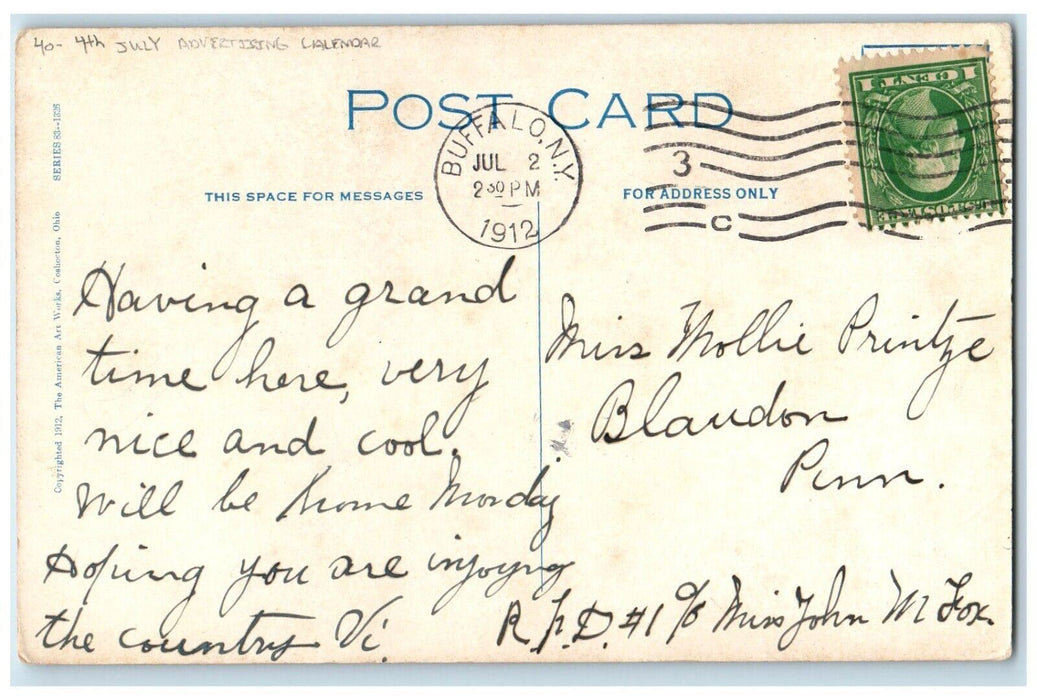 40- 4th JULY ADVERTISING CALENDAR
POST CARD
BUFFALO, N.Y.
JUL 2
2 30 PM
1912
3
C
1 CENT 1
THIS SPACE FOR MESSAGES
FOR ADDRESS ONLY
SERIES 83--1326
Copyrighted 1912, The American Art Works, Coshocton, Ohio
Having a grand
time here, very
nice and cool.
Will be home Monday
Hoping you are injoyng
the country Vi.
Miss Mollie Printze
Blandon
Penn.
R.F.D. #1 c/o Miss John M Fox.